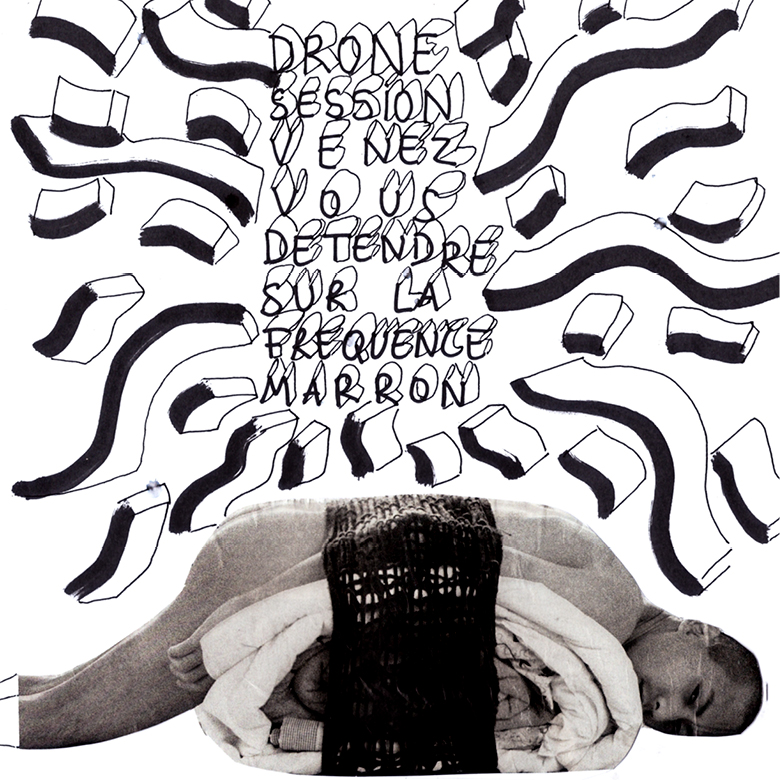 DRONE
SESSION
VENEZ
VOUS
DETENDRE
SUR LA
FREQUENCE
MARRON